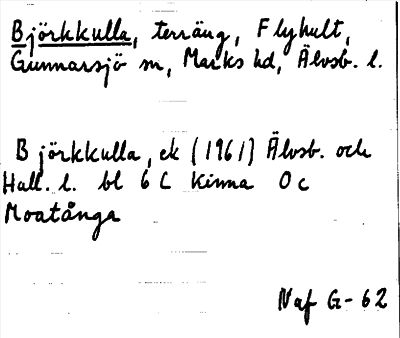 Björkkulla, terräng, Flyhult,
Gunnarsjö sn, Marks hd, Älvsb. l.
Björkkulla, ek (1961) Älvsb. och
Hall. l. bl 6 C Kinna 0 c
Moatånga
Naf G-62